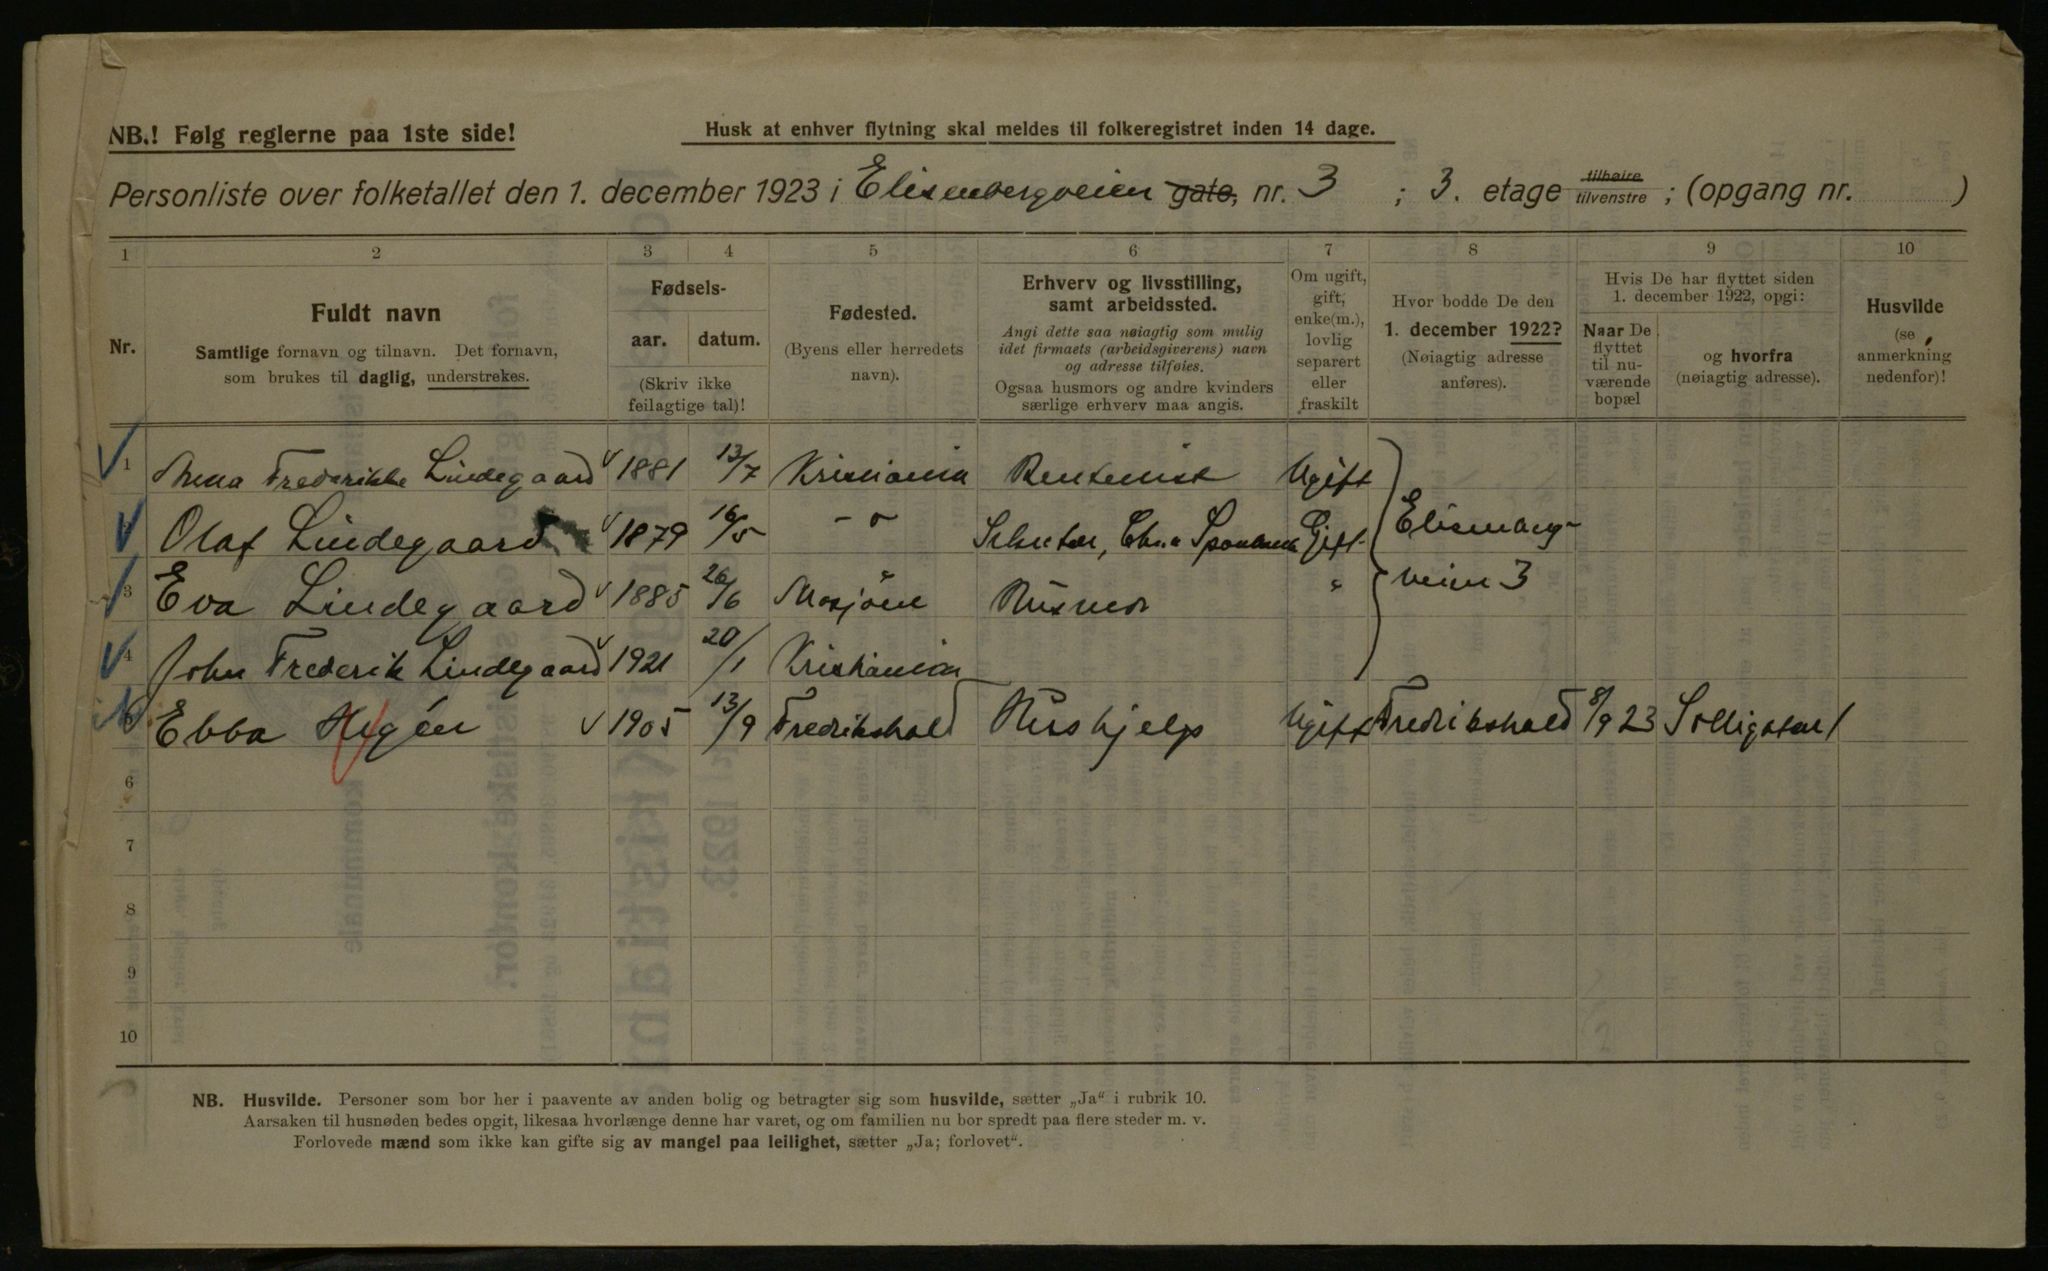 NB.! Følg reglerne paa 1ste side!
Husk at enhver flytning skal meldes til folkeregistret inden 14 dage.
Personliste over folketallet den 1. december 1923 i Elisenbergveien gate, nr. 3 ; 3. etage tilhøire tilvenstre ; (opgang nr. )
1 2 3 4 5 6 7 8 9 10
Nr.
Fuldt navn
Samtlige fornavn og tilnavn. Det fornavn,
som brukes til daglig, understrekes.
Fødsels-
aar. datum.
(Skriv ikke
feilagtige tal)!
Fødested.
(Byens eller herredets
navn).
Erhverv og livsstilling,
samt arbeidssted.
Angi dette saa nøiagtig som mulig
idet firmaets (arbeidsgiverens) navn
og adresse tilføies.
Ogsaa husmors og andre kvinders
særlige erhverv maa angis.
Om ugift,
gift,
enke(m.),
lovlig
separert
eller
fraskilt
Hvor bodde De den
1. december 1922?
(Nøiagtig adresse
anføres).
Hvis De har flyttet siden
1. december 1922, opgi:
Naar De
flyttet
til nu-
værende
bopæl
og hvorfra
(nøiagtig adresse).
Husvilde
(se
anmerkning
nedenfor)!
1 Anna Frederikke Lindegaard 1881 13/7 Kristiania Rentenist Ugift
Olaf Lindegaard 1879 16/5 - " - Sekretær, Chra Sparebank Gift Elisenberg-
3 Eva Lindegaard 1885 26/6 Mosjöen Husmor " veien 3
4 John Frederik Lindegaard 1921 20/1 Kristiania
5 Ebba 1905 13/9 Fredrikshald Hushjelp Ugift Fredrikshald 8/9 23
6
7
8
9
10
NB. Husvilde. Personer som bor her i paavente av anden bolig og betragter sig som husvilde, sætter „Ja" i rubrik 10.
Aarsaken til husnøden bedes opgit, likesaa hvorlænge denne har varet, og om familien nu bor spredt paa flere steder m. v.
Forlovede mænd som ikke kan gifte sig av mangel paa leilighet, sætter „Ja; forlovet".